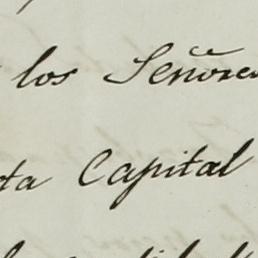 los Señores
ta Capital